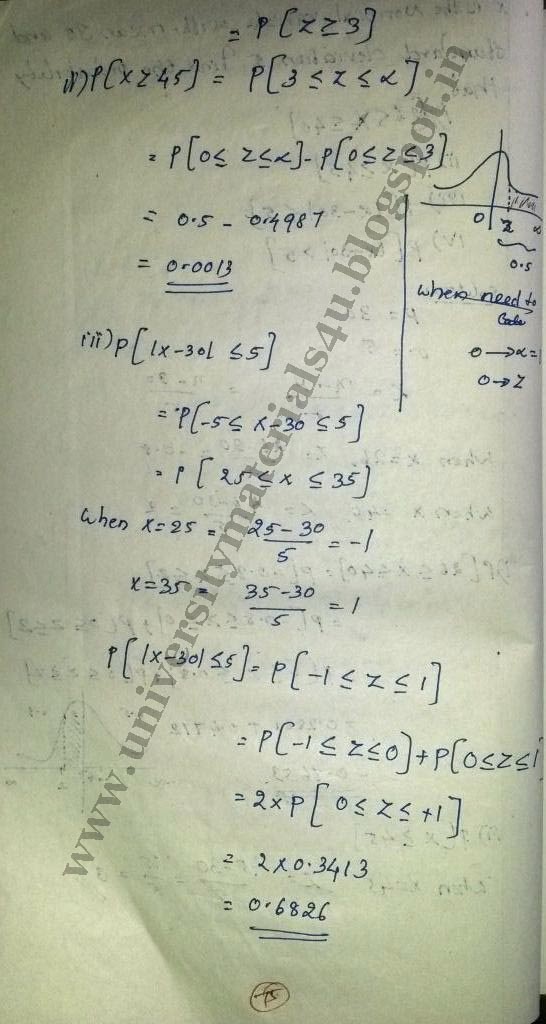 = P[Z ≥ 3]
ii) P[X ≥ 45] = P[3 ≤ Z ≤ α]
= P[0 ≤ Z ≤ α] - P[0 ≤ Z ≤ 3]
= 0.5 - 0.4987
= 0.0013
0 Z α
0.5
when need to
0 → α =
0 → Z
iii) P[|X-30| ≤ 5]
= P[-5 ≤ X-30 ≤ 5]
= P[25 ≤ X ≤ 35]
when X=25 = 25-30/5 = -1
X=35 = 35-30/5 = 1
P[|X-30| ≤ 5] = P[-1 ≤ Z ≤ 1]
= P[-1 ≤ Z ≤ 0] + P[0 ≤ Z ≤ 1
= 2 x P[0 ≤ Z ≤ +1]
= 2 x 0.3413
= 0.6826
www.universitymaterials4u.blogspot.in